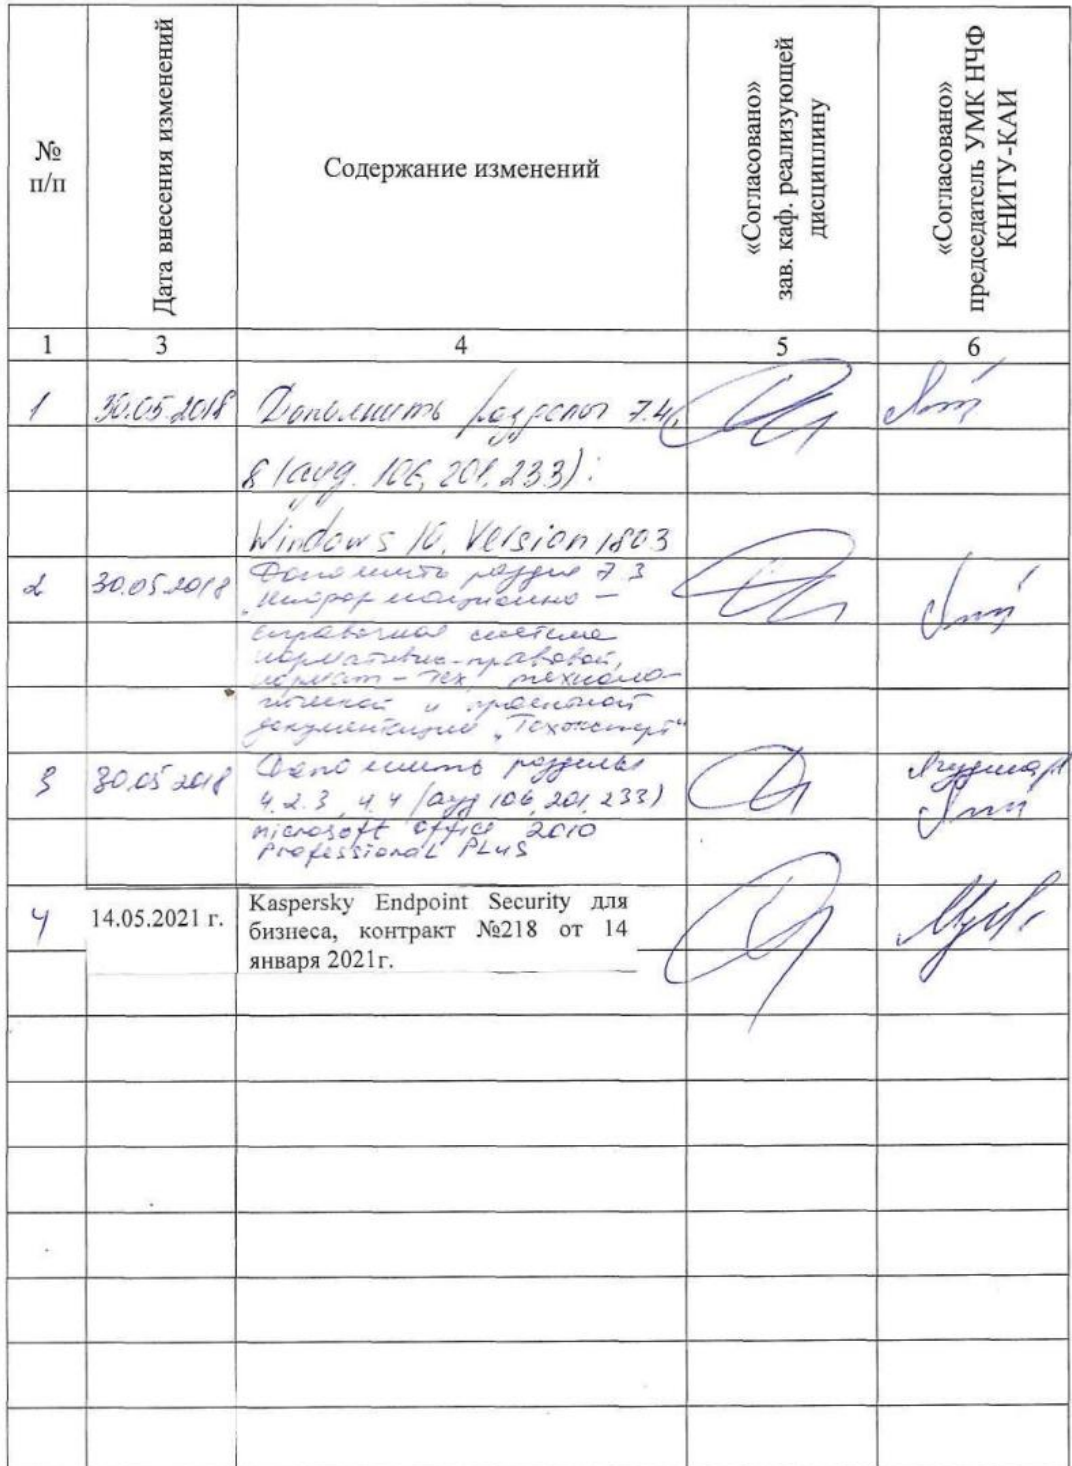 №
п/п
Дата внесения изменений
Содержание изменений
«Согласовано»
зав. каф. реализующей
дисциплину
«Согласовано»
председатель УМК НЧФ
КНИТУ-КАИ
1 3 4 5 6
1 30.05.2018 Дополнить разделы 7.4,
8 (ауд. 106, 201, 233):
Windows 10, Version 1803
2 30.05.2018 Дополнить раздел 7.3
"Информационно-
справочная система
нормативно-правовой,
нормат-тех, техноло-
гической и проектной
документации "Техэксперт"
3 30.05.2018 Дополнить разделы
4.2.3, 4.4 (ауд 106, 201, 233)
microsoft office 2010
Professional PLUS
4 14.05.2021 г. Kaspersky Endpoint Security для
бизнеса, контракт №218 от 14
января 2021г.